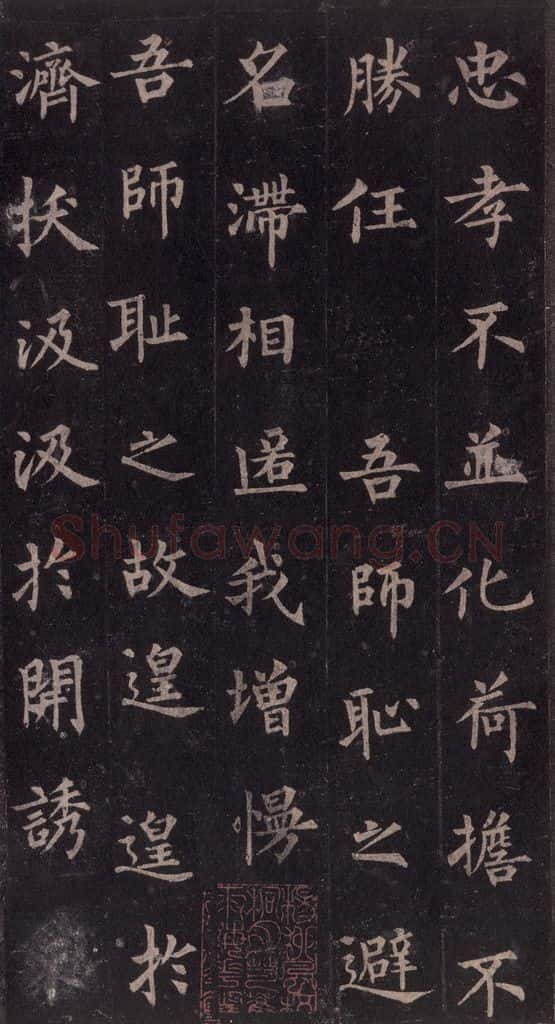 忠孝不並化荷擔不
勝任吾師恥之避
名滯相匿我增慢
吾師耻之故遑遑於
濟扶汲汲於開誘
Shufawang.CN